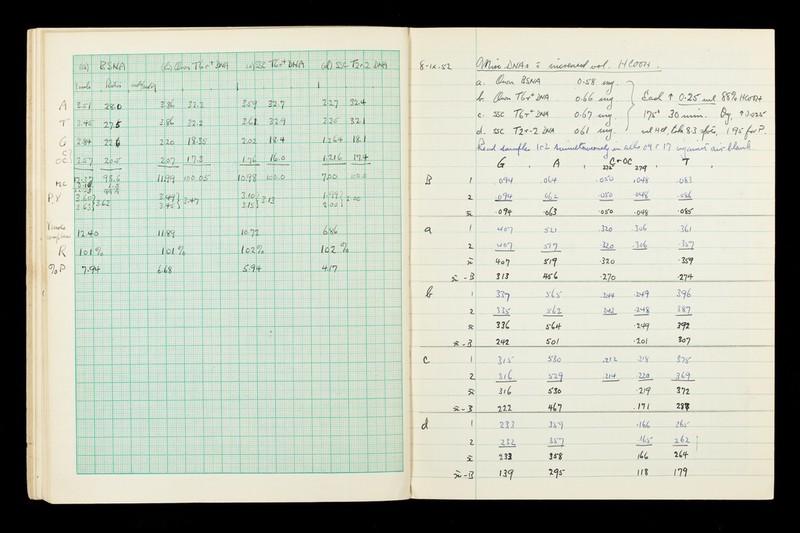 (a) BSNA (b) Onion T6r+ DNA (c) SSC T6r+ DNA (d) SSC T2r-2 DNA
A 3.51 28.0 3.86 32.2 3.59 32.7 2.27 32.4
T 3.45 27.5 3.86 32.2 3.61 32.9 2.25 32.1
G 2.84 22.6 2.20 18.35 2.02 18.4 1.264 18.1
OC 2.57 20.5 2.07 17.3 1.76 16.0 1.216 17.4
12.37 98.6 11.99 100.05 10.98 100.0 7.00 100.0
MC
P.V 3.60 3.62 3.49 3.47 3.10 3.13 1.99 2.00
3.63 3.45 3.15 2.00
12.40 11.89 10.72 6.86
R 101% 101% 102% 102%
%P 7.94 6.68 5.94 4.17
8-IX-52 DNAs increased vol. HCOOH.
a. BSNA 0.58 mg.
b. T6r+ DNA 0.66 mg Each ↑ 0.25 ml 88% HCOOH
c. SSC T6r+ DNA 0.67 mg 175° 30 min. Dry, ↑ 0.025
d. SSC T2r-2 DNA 0.61 mg
Read samples 1 & 2 simultaneously air blank
G A C+OC T
279
B 1 .094 .064 .050 .048 .083
2 .094 .062 .050 .048 .086
x̄ .094 .063 .050 .048 .085
a 1 407 521 .320 .306 .361
2 407 517 .320 .306 .357
x̄ 407 519 .320 .359
x̄-B 313 456 .270 .274
b 1 337 565 .244 .249 396
2 335 562 .242 .248 387
x̄ 336 564 .249 392
x̄-B 242 501 .201 307
c 1 315 530 .212 .218 375
2 316 529 .214 .220 369
x̄ 316 530 .219 372
x̄-B 222 467 .171 288
d 1 233 359 .166 265
2 232 357 .165 262
x̄ 233 358 166 264
x̄-B 139 295 118 179